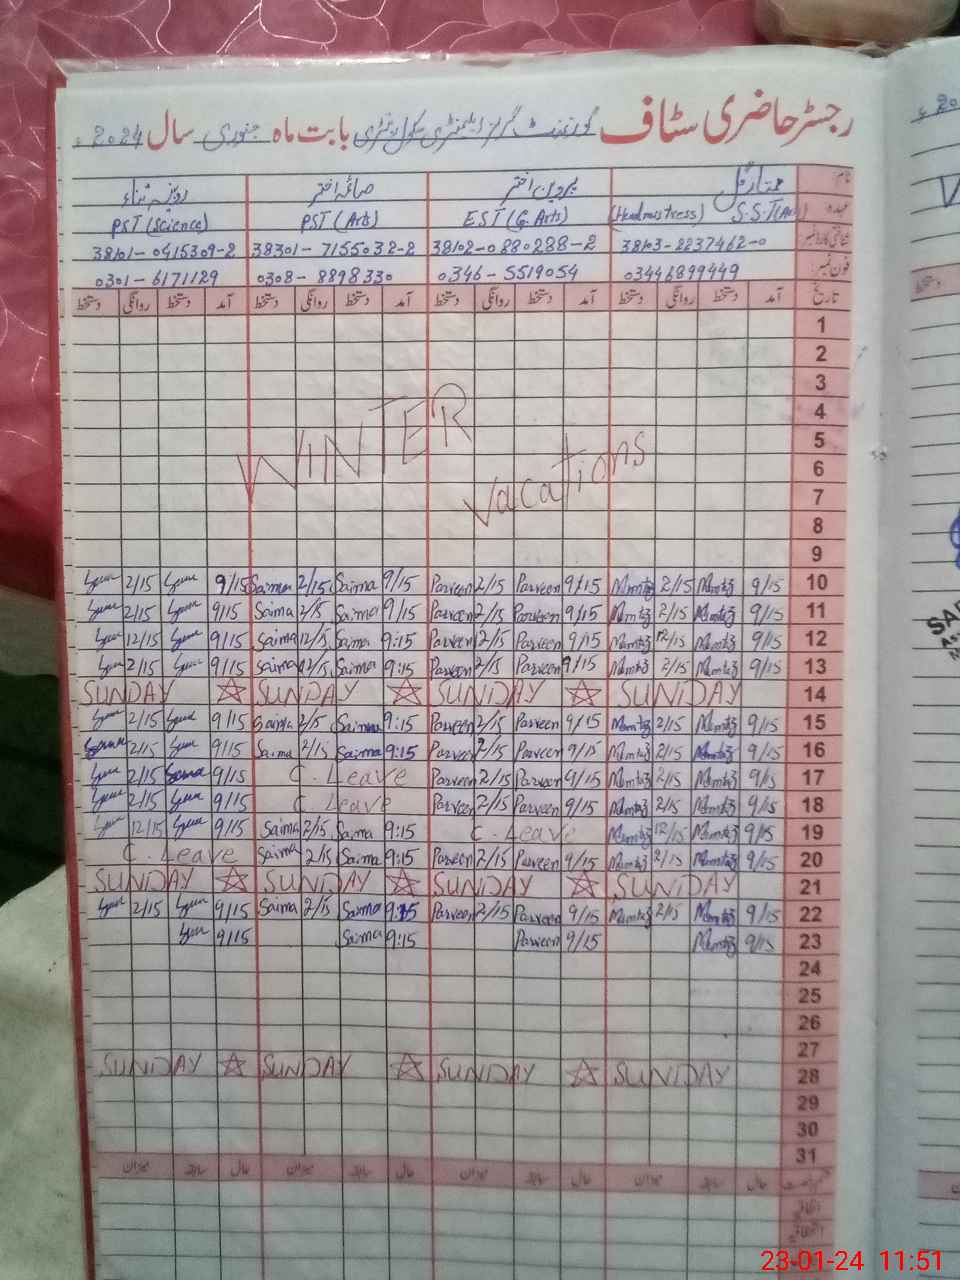 رجسٹر حاضری سٹاف گورنمنٹ گرلز ایلیمنٹری سکول بابت ماہ جنوری سال 2024ء
نام ممتاز پروین اختر صائمہ اختر روبینہ ثناء
عہدہ S.S.T(Arts) (Headmistress) EST (G. Arts) PST (Arts) PST (Science)
شناختی کارڈ نمبر 38103-2237462-0 38102-0880288-2 38301-7155032-2 38101-0415309-2
فون نمبر 03446899449 0346-5519054 0308-8898330 0301-6171129
تاریخ آمد دستخط روانگی دستخط آمد دستخط روانگی دستخط آمد دستخط روانگی دستخط آمد دستخط روانگی دستخط
1
2
3
4
WINTER
5
6
Vacations
7
8
9
2/15 9/15 Saima 2/15 Saima 9/15 Parveen 2/15 Parveen 9/15 Mumtaz 2/15 Mumtaz 9/15 10
2/15 9/15 Saima 2/15 Saima 9/15 Parveen 2/15 Parveen 9/15 Mumtaz 2/15 Mumtaz 9/15 11
12/15 9/15 Saima 12/15 Saima 9:15 Parveen 12/15 Parveen 9/15 Mumtaz 12/15 Mumtaz 9/15 12
2/15 9/15 Saima 2/15 Saima 9:15 Parveen 2/15 Parveen 9/15 Mumtaz 2/15 Mumtaz 9/15 13
SUNDAY SUNDAY SUNDAY SUNDAY 14
2/15 9/15 Saima 2/15 Saima 9:15 Parveen 2/15 Parveen 9/15 Mumtaz 2/15 Mumtaz 9/15 15
2/15 9/15 Saima 2/15 Saima 9:15 Parveen 2/15 Parveen 9/15 Mumtaz 2/15 Mumtaz 9/15 16
2/15 9/15 C. Leave Parveen 2/15 Parveen 9/15 Mumtaz 2/15 Mumtaz 9/15 17
2/15 9/15 C. Leave Parveen 2/15 Parveen 9/15 Mumtaz 2/15 Mumtaz 9/15 18
12/15 9/15 Saima 2/15 Saima 9:15 C. Leave Mumtaz 12/15 Mumtaz 9/15 19
C. Leave Saima 2/15 Saima 9:15 Parveen 2/15 Parveen 9/15 Mumtaz 2/15 Mumtaz 9/15 20
SUNDAY SUNDAY SUNDAY SUNDAY 21
2/15 9/15 Saima 2/15 Saima 9:15 Parveen 2/15 Parveen 9/15 Mumtaz 2/15 Mumtaz 9/15 22
9/15 Saima 9:15 Parveen 9/15 Mumtaz 9/15 23
24
25
26
27
SUNDAY SUNDAY SUNDAY SUNDAY 28
29
30
31
حال سابقہ میزان حال سابقہ میزان حال سابقہ میزان حال سابقہ میزان
23-01-24 11:51